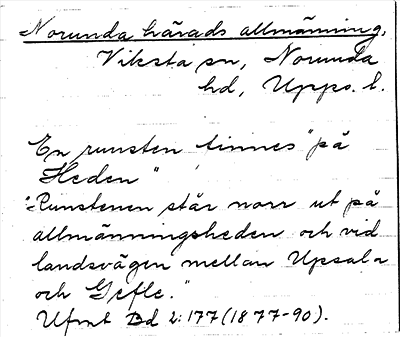 Norunda härads allmänning.
Viksta sn, Norunda
hd, Upps. l.
En runsten finnes "på
Heden"
"Runstenen står norr ut på
allmänningsheden och vid
landsvägen mellan Upsala
och Gefle."
Ufmt Bd 2:177 (1877-90).